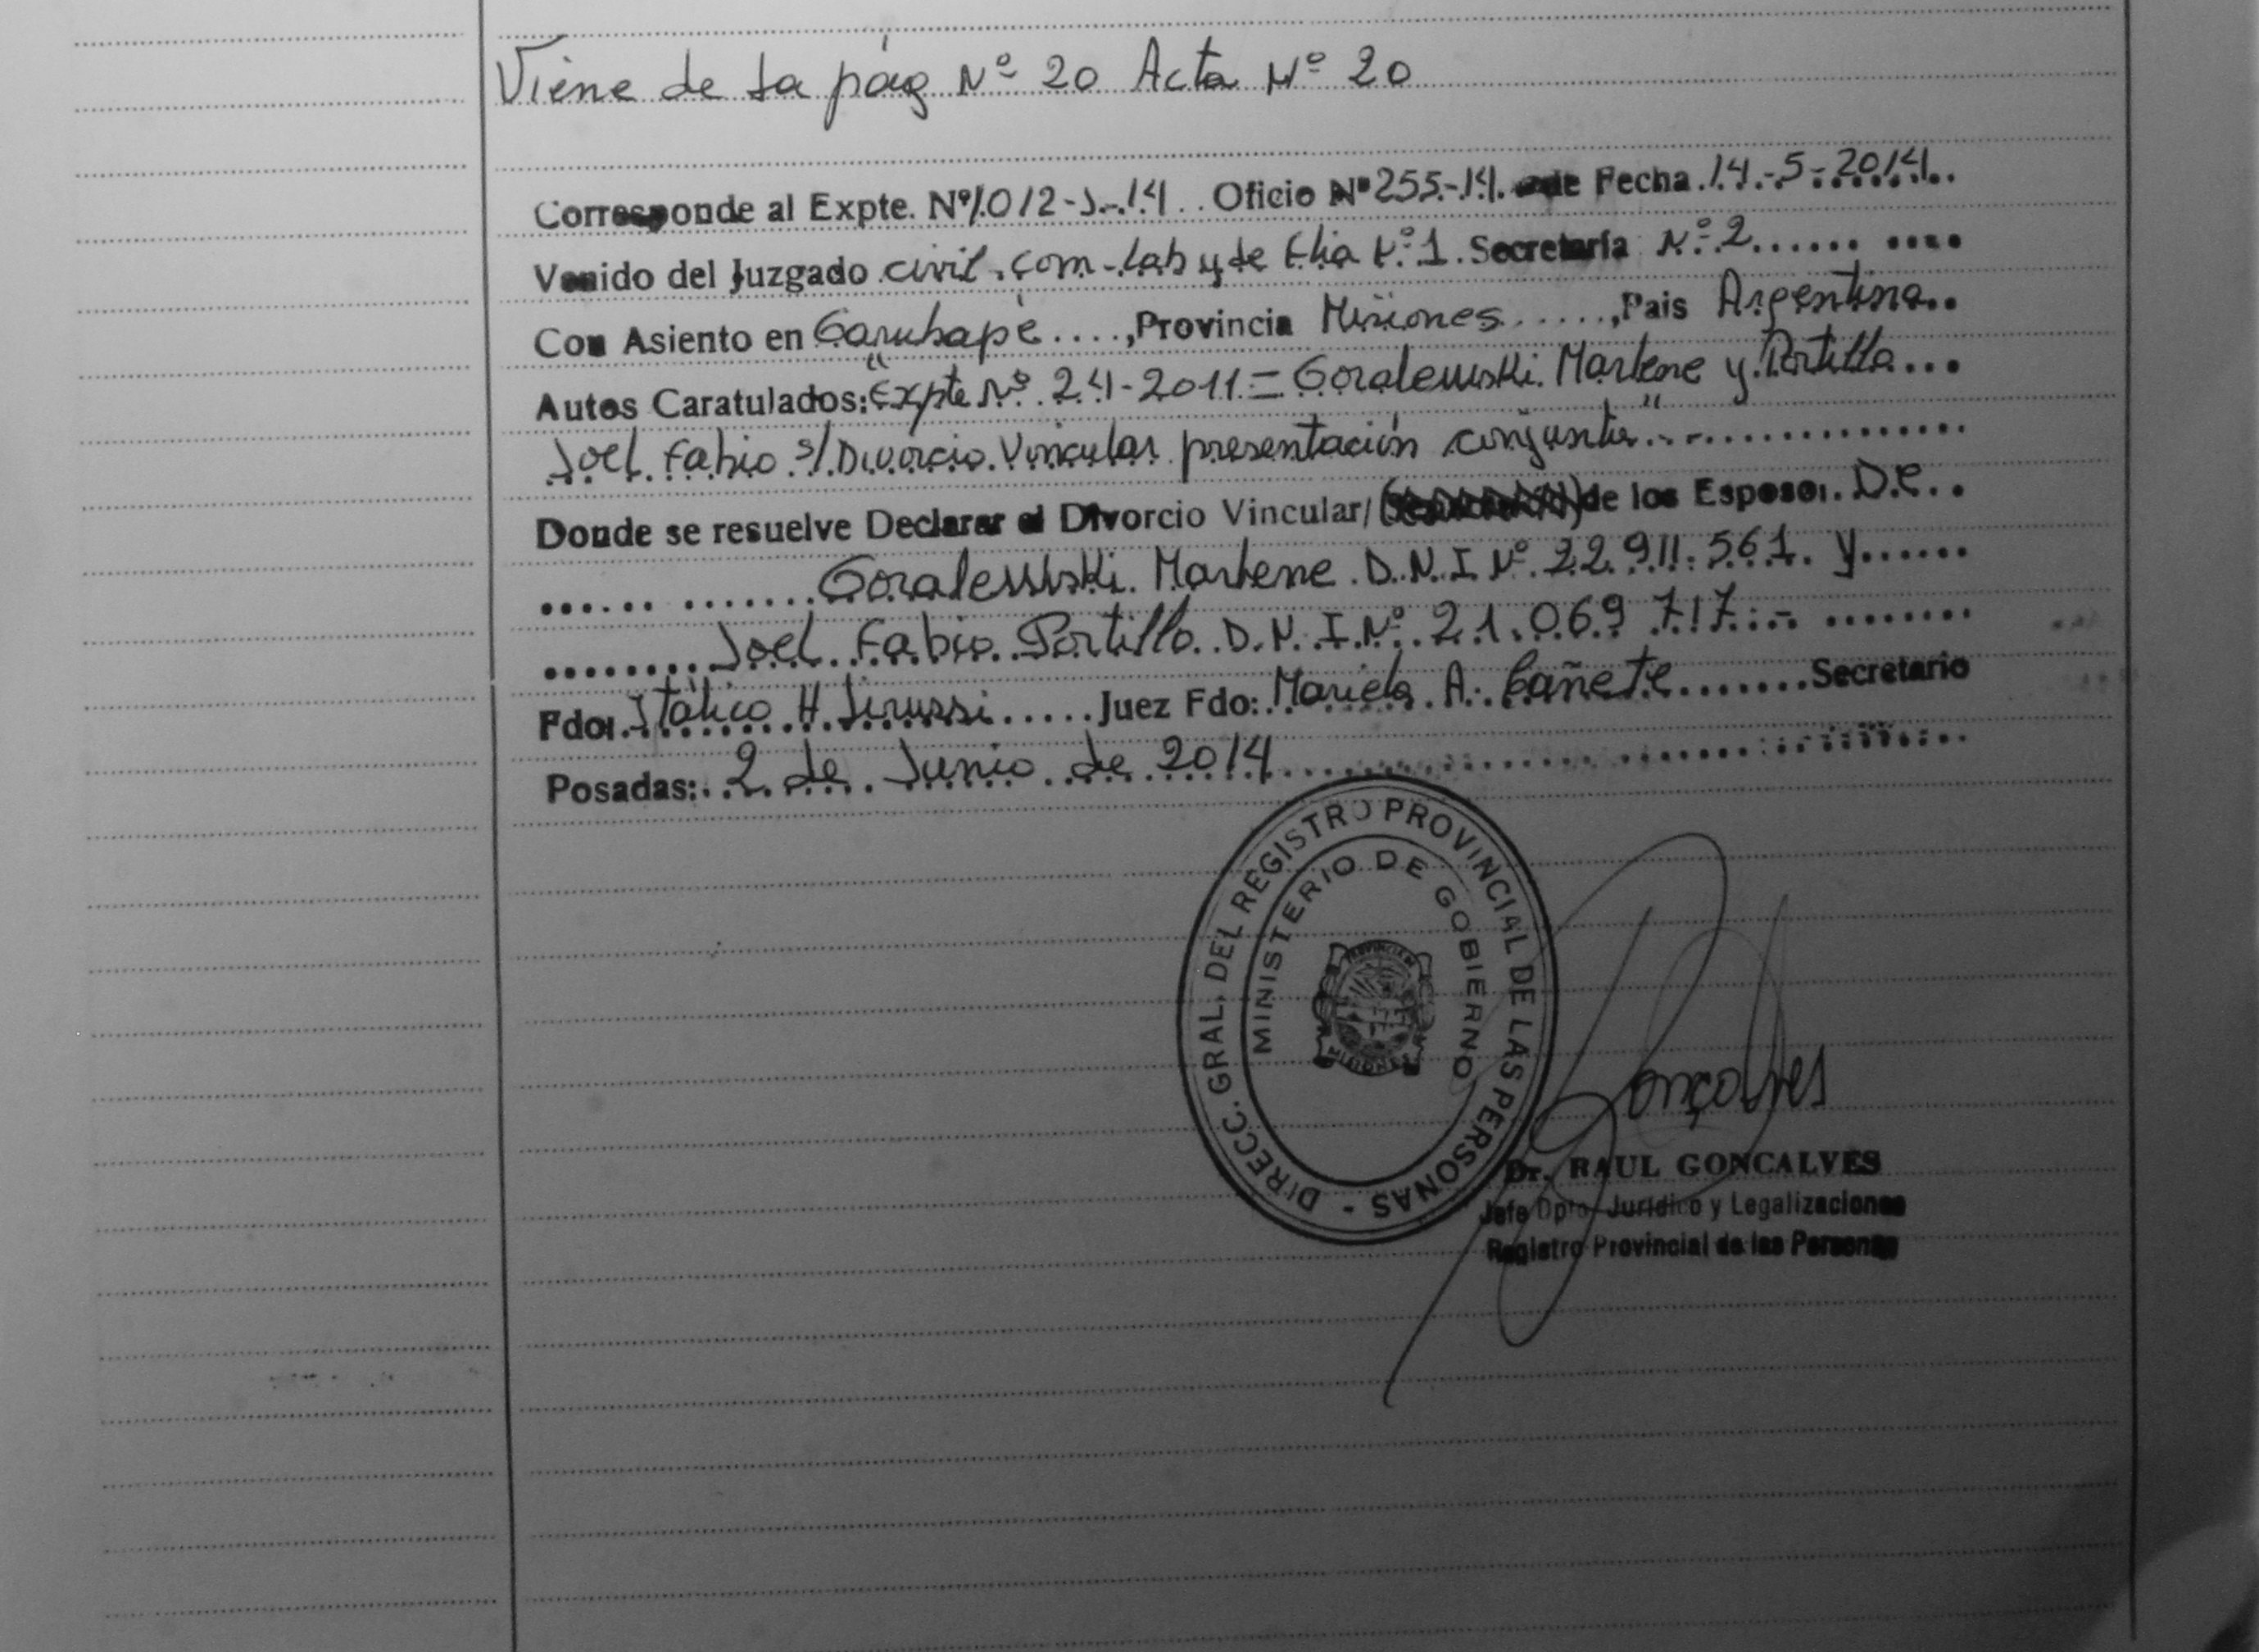 Viene de la pág Nº 20 Acta Nº 20
Corresponde al Expte. Nº 1.012-J-14 Oficio Nº 255-14 de Fecha 14-5-2014
Venido del Juzgado civil, Com-lab y de Flia Nº 1. Secretaría Nº 2
Con Asiento en Garuhapé, Provincia Misiones, Pais Argentina
Autos Caratulados: "Expte Nº 24-2011 = Goralewski Marlene y Portillo
Joel Fabio s/Divorcio Vincular presentación conjunta"
Donde se resuelve Declarar el Divorcio Vincular/ de los Esposos: D.C.
Goralewski Marlene D.N.I Nº 22.911.561. y
Joel Fabio Portillo D.N.I Nº 21.069 717.-
Fdo: Itálico H. Juez Fdo: Mariela A. Cañete Secretario
Posadas: 2 de Junio de 2014
DIRECC. GRAL. DEL REGISTRO PROVINCIAL DE LAS PERSONAS -
MINISTERIO DE GOBIERNO
PROVINCIA DE
MISIONES
Gonçalves
Dr. RAUL GONCALVES
Jefe Dpto. Jurídico y Legalizaciones
Registro Provincial de las Personas